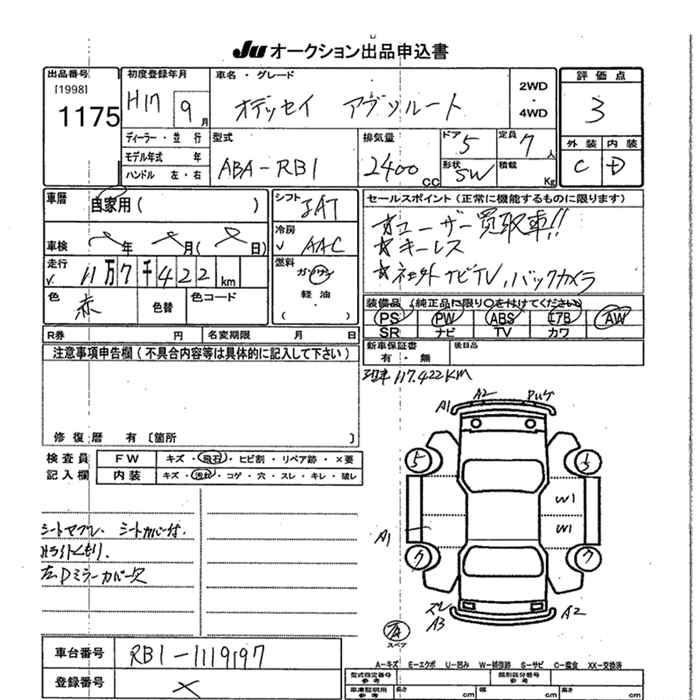 JU オークション出品申込書
出品番号 初度登録年月 車名・グレード 評価点
[1998]
1175 H17 9月 オデッセイ アブソルート 2WD・4WD 3
ディーラー・並行 型式 排気量 ドア 5 定員 7人 外装 内装
モデル年式 年 ABA-RB1 2400cc 形状 SW 積載 Kg C D
ハンドル 左・右
車歴 自家用( ) シフト IAT セールスポイント(正常に機能するものに限ります)
車検 年 月( 日) 冷房 AAC ☆ユーザー買取車!!
☆キーレス
走行 11万7千422km 燃料 ガソリン・軽油・( )
バックカメラ
色 赤 色替 色コード
装備品(純正品に限り○を付けてください)
PS PW ABS エアB AW
SR ナビ TV カワ
R券 円 名変期限 月 日
新車保証書 有・無 後日品
注意事項申告欄(不具合内容等は具体的に記入して下さい)
117.422KM
修復歴 有〔箇所 〕
検査員記入欄 FW キズ・飛石・ヒビ割・リペア跡・×要
内装 キズ・汚れ・コゲ・穴・スレ・キレ・破レ
A1 A2
シートカバー付.
W1
W1
A1
左Dミラーカバー欠
スレ A3 A2
スペア
車台番号 RB1-1119197
登録番号 ×
A-キズ E-エクボ U-凹み W-補修跡 S-サビ C-腐食 XX-交換済
型式指定番号 参考 類別区分番号 参考
車庫証明用 参考 長さ cm 幅 cm 高さ cm